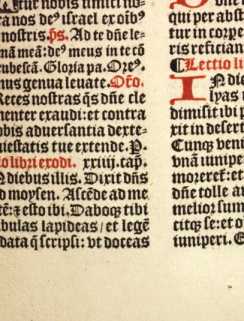 tur nobis ...
ra nos deꝰ israel ex oı̄bꝰ
nostris. p̄s. Ad te dn̄e le-
mā meā: deꝰ meus in te cō
rubescā. Gloria pa. Oꝛeꝰ.
nus genua leuate. Oꝛo.
Reces nostras q̄s dn̄e cle
nenter exaudi: et contra
obis aduersantia dexte-
iestatis tue extende. P.
lo libri exodi. xxiiij. cap̄.
N diebus illis. Dixit dn̄s
d moysen. Ascēde ad me
tē: ⁊ esto ibi. Daboqꝫ tibi
bulas lapideas / et legē
data q̄ scripsi: vt doceas
qui per abst
tur in coꝛpe
ris reficiant
Lectio li
IN die
lyas
dimisit ibi p
xit in desert
Cunqꝫ veni
vnā iunipe
moꝛeret̄: et
dn̄e tolle a
melioꝛ sum
citqꝫ se: et o
iuniperi. E